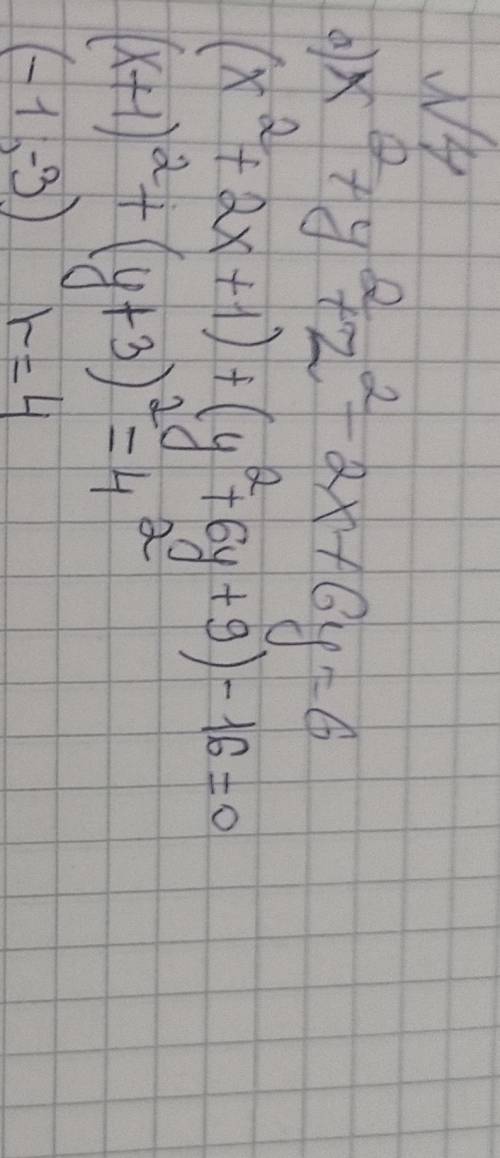 №4
а) x² + y² + z² - 2x + 6y = 6
(x² + 2x + 1) + (y² + 6y + 9) - 16 = 0
(x+1)² + (y+3)² = 4²
(-1; -3) r = 4